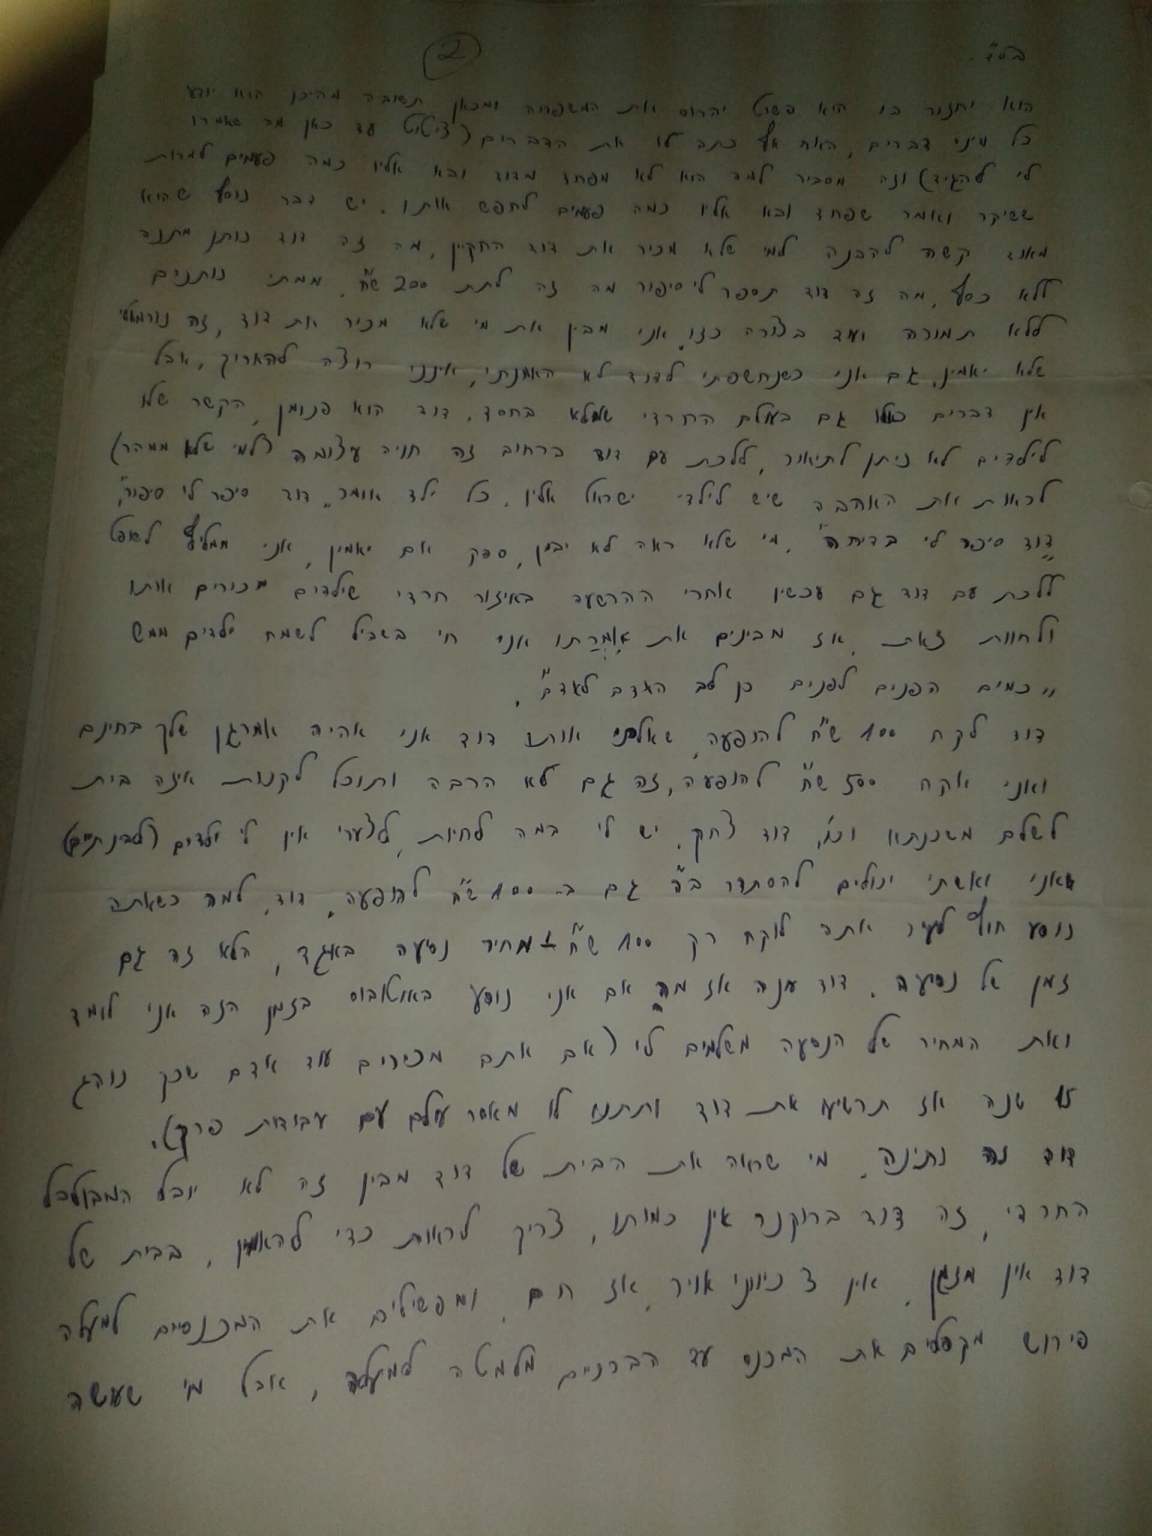 בס"ד.
2
הוא יחזור בו היא פשוט יהרוס את המשפחה ומכאן תשובה מהיכן הוא יודע
כל מיני דברים, האח אף כתב לו את הדברים (ציטוט עד כאן מה שאמרו
לי להגיד) וזה מסביר למה הוא לא מפחד מדוד ובא אליו כמה פעמים למרות
ששיקר ואמר שפחד ובא אליו כמה פעמים לחפש אותו. יש דבר נוסף שהוא
מאוד קשה להבנה למי שלא מכיר את דוד החקיין, מה זה דוד נותן מתנה
ללא כסף, מה זה דוד תספר לי סיפור מה זה לתת 200 ש"ח. ממתי נותנים
ללא תמורה ועד בצורה כזו, אני מבין את מי שלא מכיר את דוד, זה נורמאלי
שלא יאמין, גם אני כשנחשפתי לדוד לא האמנתי, אינני רוצה להאריך, אבל
אין דברים כאלו גם בעולם החרדי שמלא בחסד. דוד הוא פנומן, הקשר שלו
לילדים לא ניתן לתיאור, ללכת עם דוד ברחוב זה חויה עצומה (למי שלא ממהר)
לראות את האהבה שיש לילדי ישראל אליו. כל ילד אומר "דוד סיפר לי סיפור",
"דוד סיפר לי בדיחה". מי שלא ראה לא יבין, ספק אם יאמין, אני ממליץ לשופט
ללכת עם דוד גם עכשיו אחרי ההרשעה באיזור חרדי שילדים מכירים אותו
ולחוות זאת, אז מבינים את אמרתו אני חי בשביל לשמח ילדים ממש
"כמים הפנים לפנים כן לב האדם לאדם".
דוד לקח 100 ש"ח להופעה, שאלתי אותו דוד אני אהיה אמרגן שלך בחינם
ואני אקח 500 ש"ח להופעה, זה גם לא הרבה ותוכל לקנות איזה בית
לשלם משכנתא וכו', דוד צחק. יש לי במה לחיות, לצערי אין לי ילדים (לבינתיים)
שאני ואשתי יכולים להסתדר ב"ה גם ב- 100 ש"ח להופעה, דוד, למה כשאתה
נוסע חוץ לעיר אתה לוקח רק 100 ש"ח + מחיר נסיעה באגד, הלא זה גם
זמן של נסיעה. דוד ענה אז מה אם אני נוסע באוטובוס בזמן הזה אני לומד
ואת המחיר של הנסעה משלמים לי (אם אתם מכירים עוד אדם שכך נוהג
15 שנה אז תרשיעו את דוד ותתנו לו מאסר עולם עם עבודות פרך).
דוד זה נתינה. מי שראה את הבית של דוד מבין זה לא יובל המבולבל
החרדי, זה דוד ברוקנר אין כמותו, צריך לראות כדי להאמין, בבית של
דוד אין מזגן, אין 3 כיווני אויר, אז חם, ומפשילים את המכנסיים למעלה
פירוש מקפלים את המכנס עד הברכיים מלמטה למעלה, אבל מי שעושה